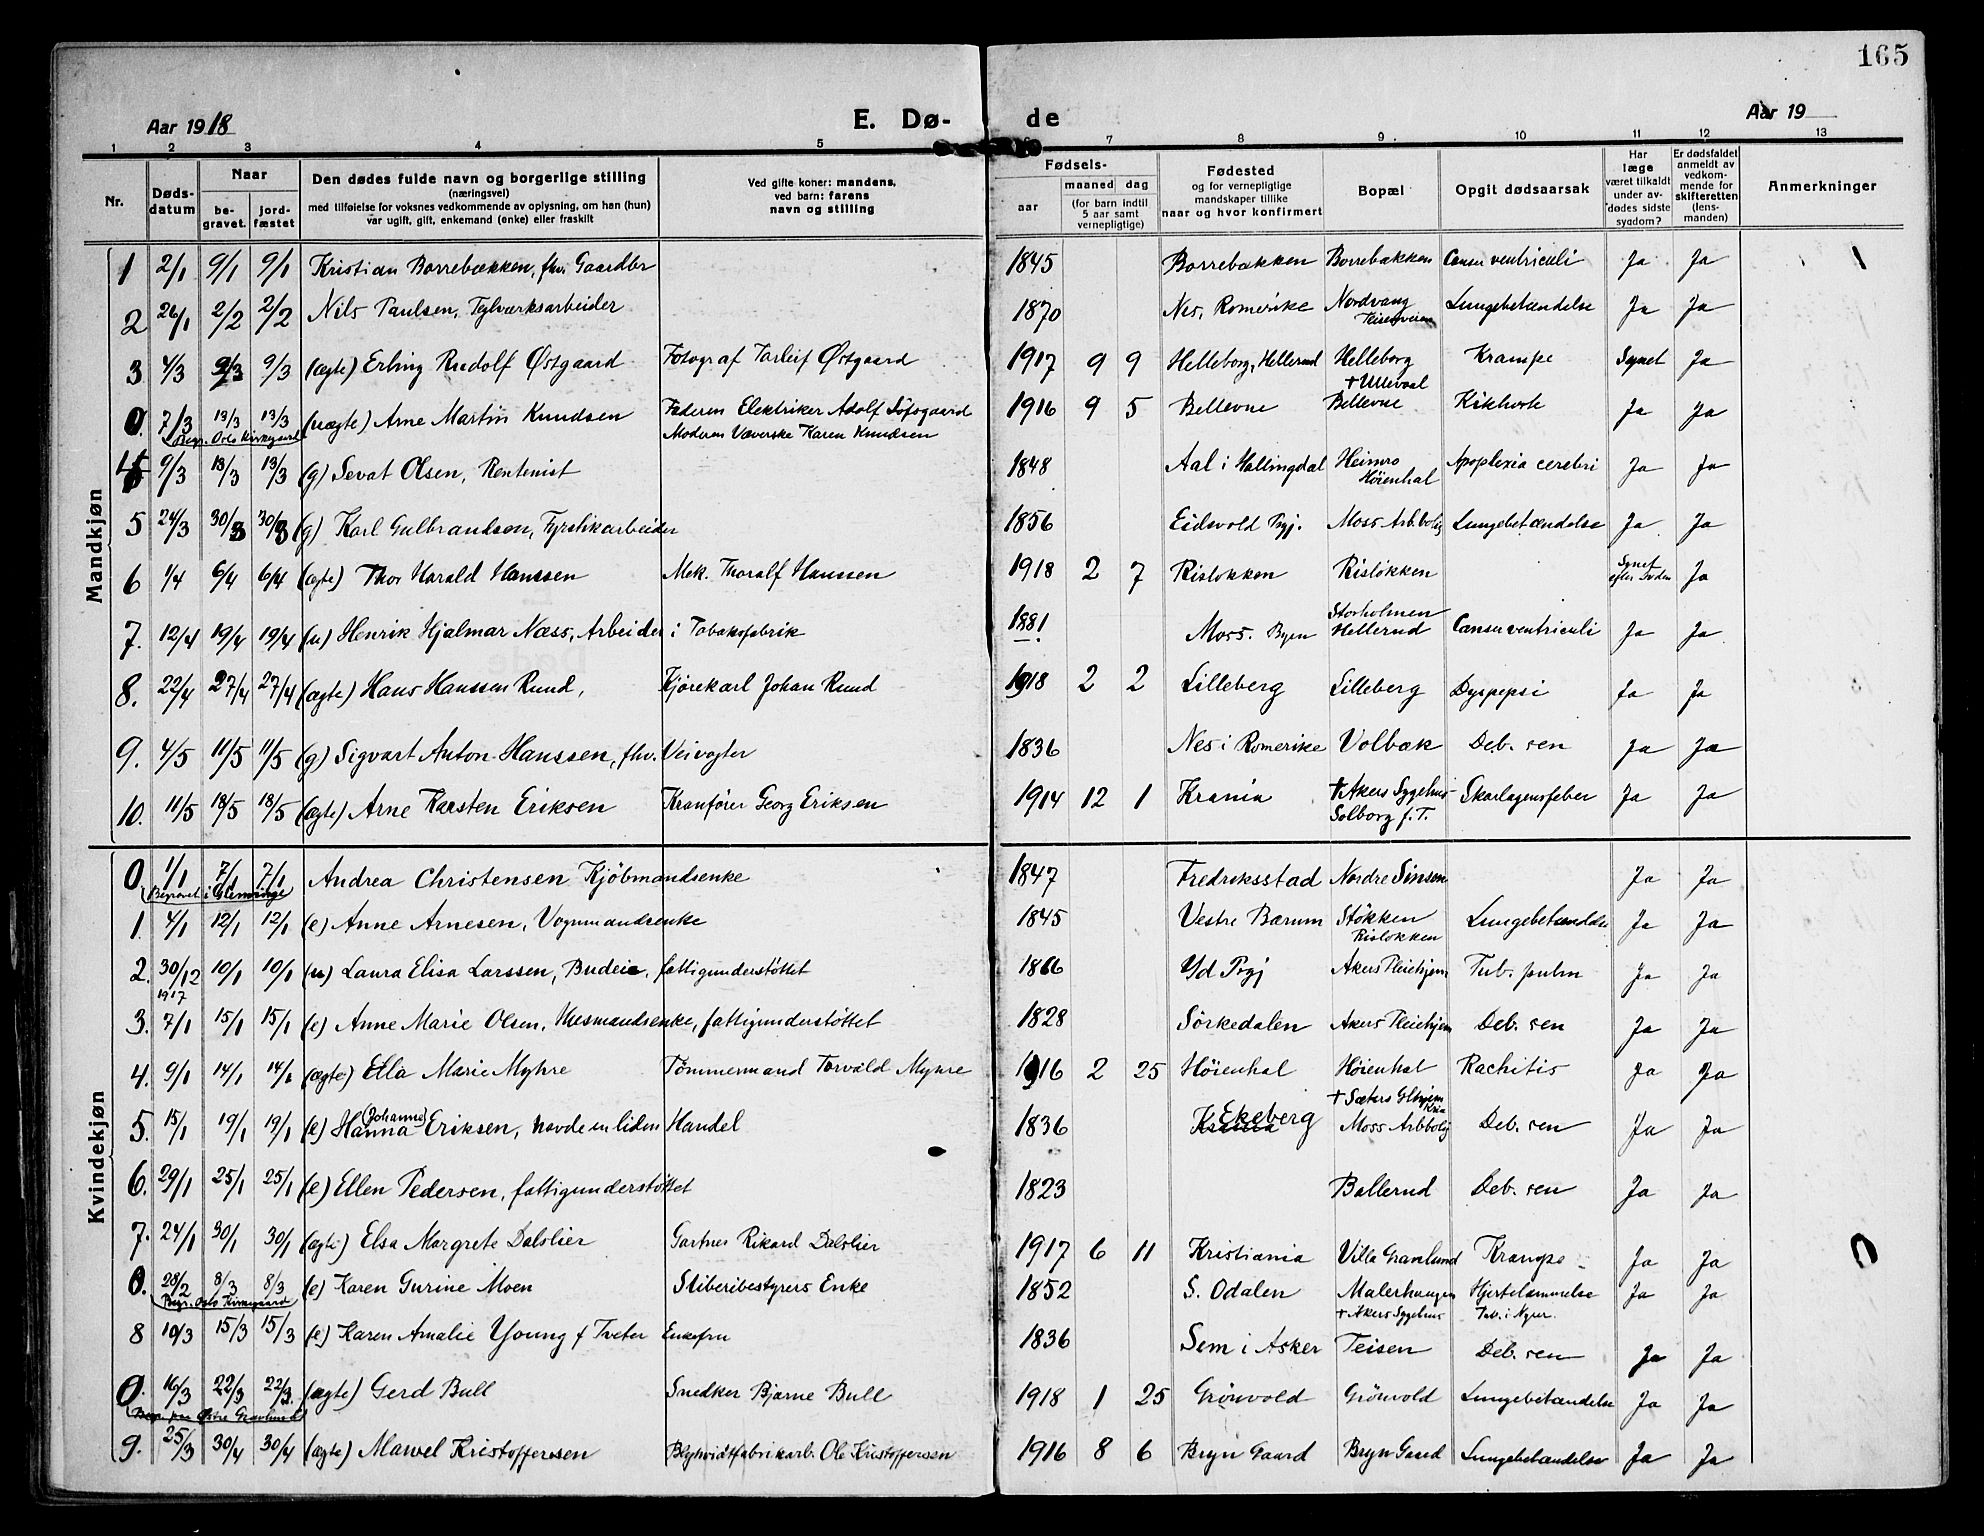 165
Aar 1918
E. Dø-
de
Aar 19
1 2 3 4 5 6 7 8 9 10 11 12 13
Nr.
Døds-
datum
Naar
be-
gravet.
jord-
fæstet
Den dødes fulde navn og borgerlige stilling
(næringsvei)
med tilføielse for voksnes vedkommende av oplysning, om han (hun)
var ugift, gift, enkemand (enke) eller fraskilt
Ved gifte koner: mandens,
ved barn: farens
navn og stilling
Fødsels-
aar
maaned dag
(for barn indtil
5 aar samt
vernepligtige)
Fødested
og for vernepligtige
mandskaper tillike
naar og hvor konfirmert
Bopæl
Opgit dødsaarsak
Har
læge
været tilkaldt
under av-
dødes sidste
sygdom?
Er dødsfaldet
anmeldt av
vedkom-
mende for
skifteretten
(lens-
manden)
Anmerkninger
Mandkjøn
1 2/1 9/1 9/1 Kristian Borrebækken, fhv. Gaardbr 1845 Borrebækken Borrebækken Cancer ventriculi Ja Ja 1
2 26/1 2/2 2/2 Nils Paulsen, Teglværksarbeider 1870 Nes, Romerike Nordvang Lungebetændelse Ja Ja
Teisenveien
3 4/3 9/3 9/3 (ægte) Erling Rudolf Østgaard Fotograf Tarleif Østgaard 1917 9 9 Helleborg, Hellerud Helleborg Krampe Synet Ja
+ Ullevaal
0. 7/3 13/3 13/3 (uægte) Arne Martin Knudsen Faderen Elektriker Adolf Løfsgaard 1916 9 5 Bellevue Bellevue Kikhoste Ja Ja
Begr. Oslo Kirkegaard Moderen Væverske Karen Knudsen
4 9/3 13/3 13/3 (g) Sevat Olsen, Rentenist 1848 Aal i Hallingdal Heimro Apoplexia cerebri Ja Ja
Høienhal
5 24/3 30/3 30/3 (g) Karl Gulbrandsen, Fyrstikarbeider 1856 Eidsvold Pgj. Moss Arb.bolig Lungebetændelse Ja Ja
6 1/4 6/4 6/4 (ægte) Thor Harald Hanssen Mek. Thoralf Hanssen 1918 2 7 Risløkken Risløkken Synet efter Døden Ja
7. 12/4 19/4 19/4 (u) Henrik Hjalmar Næss, Arbeider i Tobaksfabrik 1881 Moss. Byen Storholmen Hellerud Cancer ventriculi Ja Ja
8. 22/4 27/4 27/4 (ægte) Hans Hanssen Rund, Kjørekarl Johan Rund 1918 2 2 Lilleberg Lilleberg Dyspepsi Ja Ja
9. 4/5 11/5 11/5 (g) Sigvart Anton Hanssen, fhv. Veivogter 1836 Nes i Romerike Volbæk Deb. sen Ja Ja
10. 11/5 18/5 18/5 (ægte) Arne Karsten Eriksen Kranfører Georg Eriksen 1914 12 1 Krania + Akers Sygehus Skarlagensfeber Ja Ja
Solborg f. T.
Kvindekjøn
0. 1/1 7/1 7/1 Andrea Christensen Kjöbmandsenke 1847 Fredriksstad Nordre Sinsen Ja Ja
Begravet i Glemminge
1. 4/1 12/1 12/1 (e) Anne Arnesen, Vognmandsenke 1845 Vestre Bærum Støkken Lungebetændelse Ja Ja
Risløkken
2. 30/12 10/1 10/1 (u) Laura Elisa Larssen, Budeie, fattigunderstøttet 1866 Yd Pgj Akers Pleiehjem Tub. pulm Ja Ja
1917
3. 7/1 15/1 15/1 (e) Anne Marie Olsen, Husmandsenke, fattigunderstøttet 1828 Sørkedalen Akers Pleiehjem Deb. sen Ja Ja
4. 9/1 14/1 14/1 (ægte) Ella Marie Myhre Tømmermand Torvald Myhre 1916 2 25 Høienhal Høienhal Rachitis Ja Ja
+ Sæters
5. 15/1 19/1 19/1 (e) Hanna (Johanne) Eriksen, havde en liden Handel 1836 Krania Ekeberg Moss Arb.bolig Deb. sen Ja Ja
6. 29/1 25/1 25/1 (e) Ellen Pedersen, fattigunderstøttet 1823 Ballerud Deb. sen Ja Ja
7. 24/1 30/1 30/1 (ægte) Elsa Margrete Dalslier Gartner Rikard Dalslier 1917 6 11 Kristiania Villa Granlund Krampe Ja Ja 0
0. 28/2 8/3 8/3 (e) Karen Gurine Moen Stiberibestyrers Enke 1852 S. Odalen Malerhaugen Hjertelammelse Ja Ja
Begr. Oslo Kirkegaard + Akers Sygehus Tub. i Nyrer.
8 10/3 15/3 15/3 (e) Karen Amalie Young f Tveter Enkefru 1836 Sem i Asker Teisen Deb. sen Ja Ja
0. 16/3 22/3 22/3. (ægte) Gerd Bull Snedker Bjarne Bull 1918 1 25 Grönvold Grönvold Lungebetændelse Ja Ja
Begr. paa Østre Gravlund
9. 25/3 30/4 30/4 (ægte) Marvel Kristoffersen Blyhvidtfabrikarb. Ole Kristoffersen 1916 8 6 Bryn Gaard Bryn Gaard Lungebetændelse Ja Ja